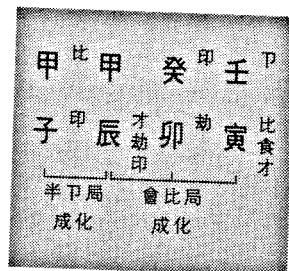 甲 比 甲 癸 印 壬 卩
子 印 辰 才劫印 卯 劫 寅 比食才
半卩局 會比局
成化 成化